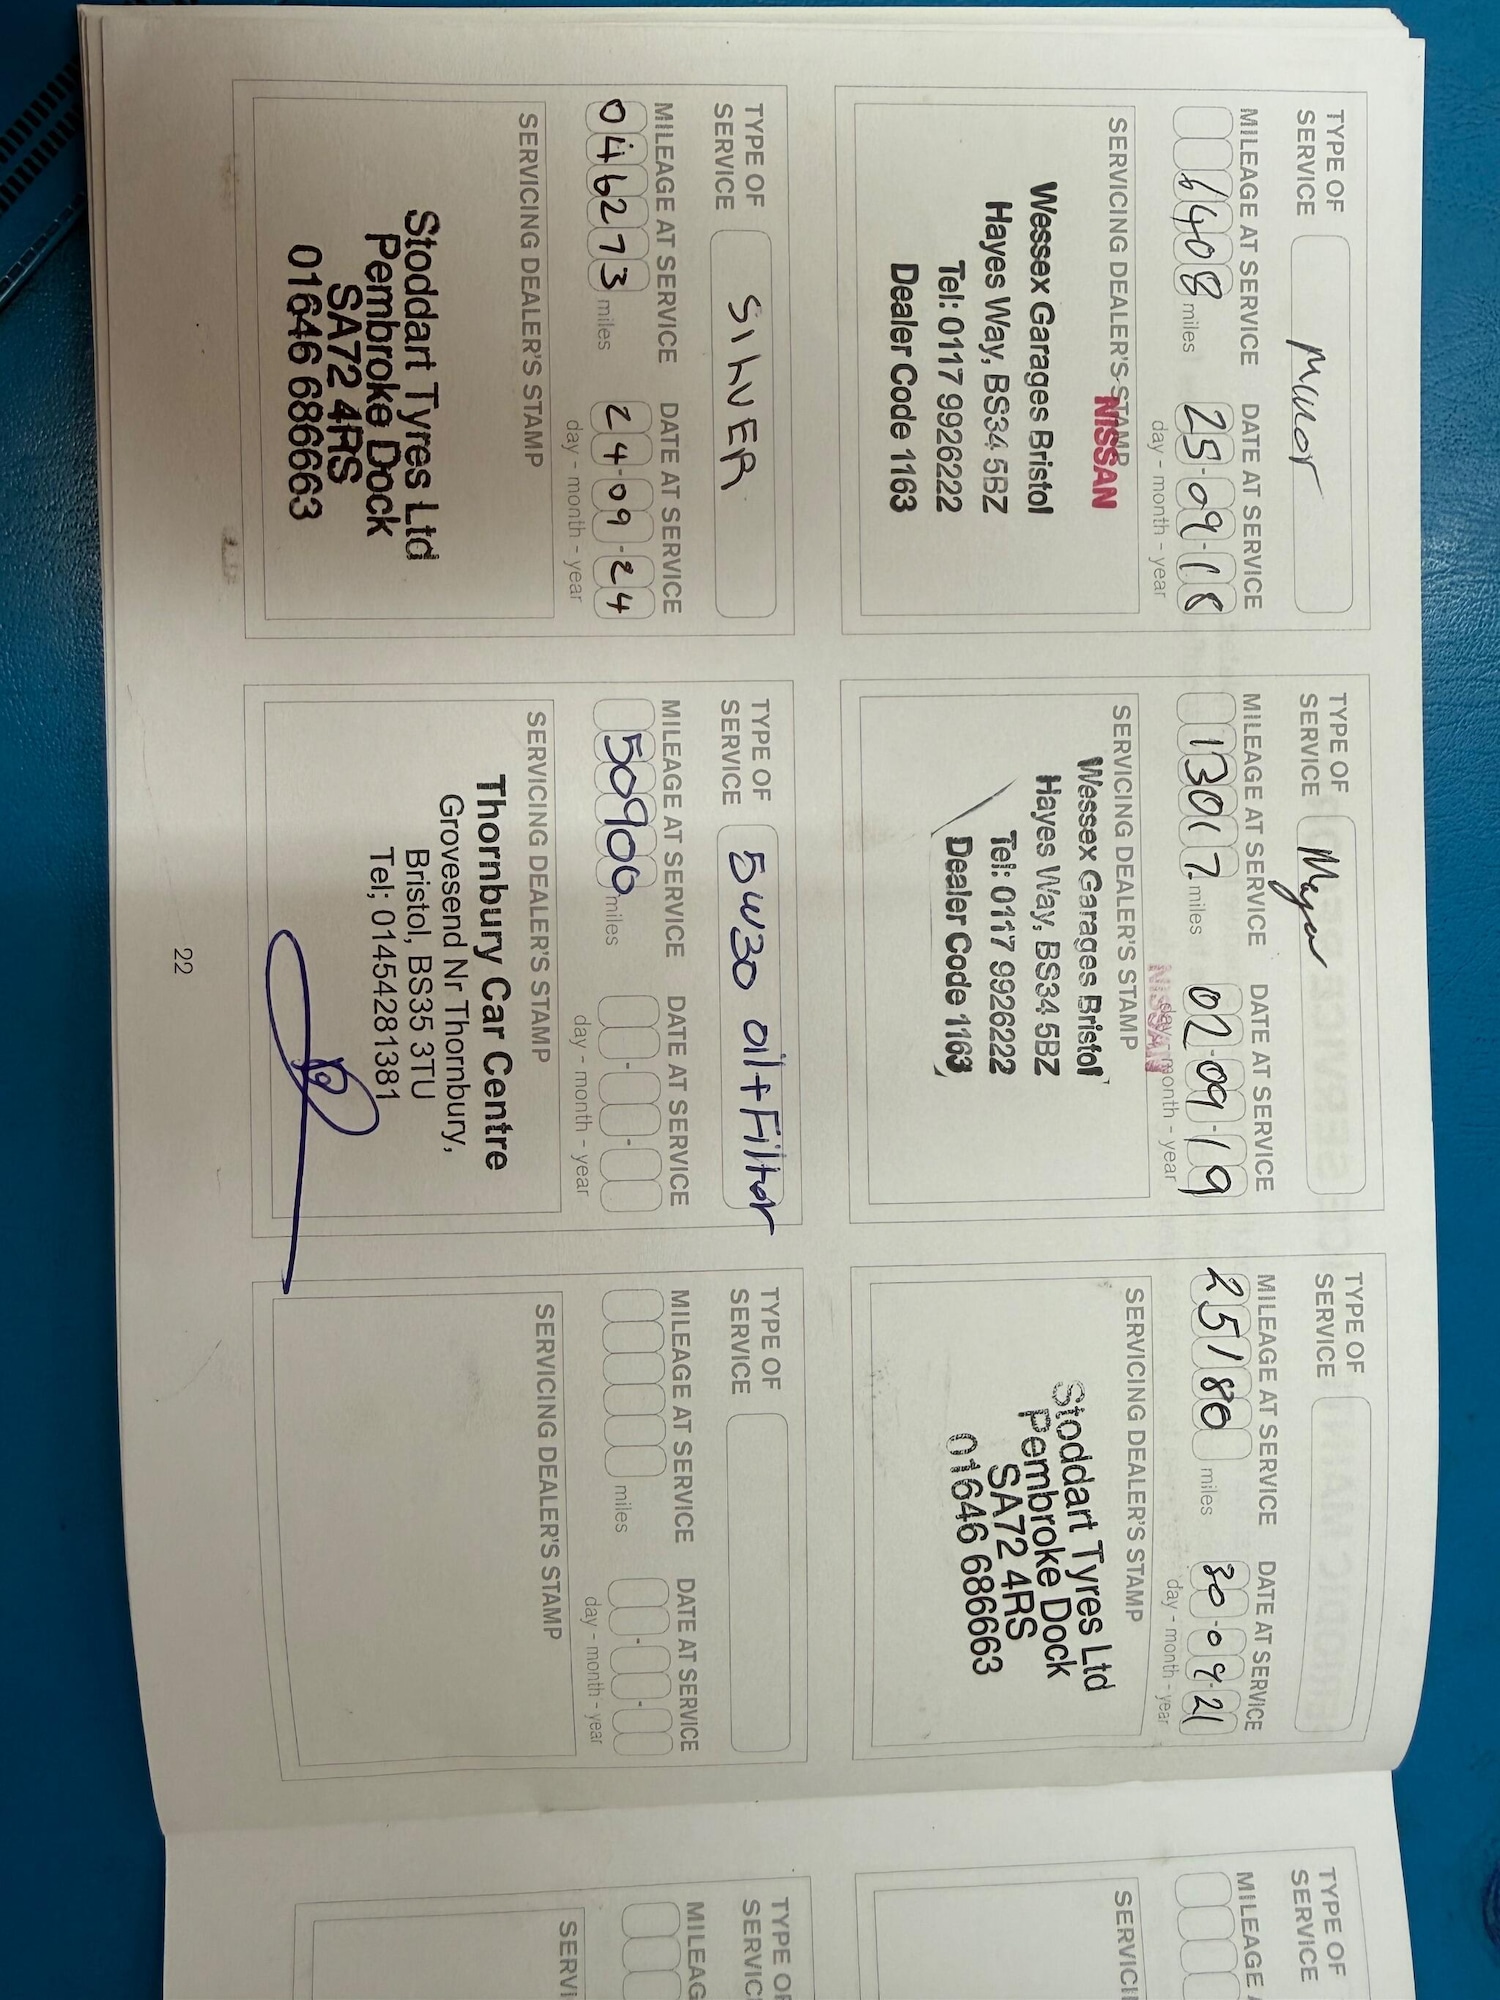 TYPE OF
SERVICE
Minor
MILEAGE AT SERVICE
DATE AT SERVICE
6408 miles
25-09-18
day - month - year
SERVICING DEALER'S STAMP
NISSAN
Wessex Garages Bristol
Hayes Way, BS34 5BZ
Tel: 0117 9926222
Dealer Code 1163
TYPE OF
SERVICE
Major
MILEAGE AT SERVICE
DATE AT SERVICE
13017 miles
02-09-19
day - month - year
NISSAN
SERVICING DEALER'S STAMP
Wessex Garages Bristol
Hayes Way, BS34 5BZ
Tel: 0117 9926222
Dealer Code 1163
TYPE OF
SERVICE
MILEAGE AT SERVICE
DATE AT SERVICE
25180 miles
30-09-21
day - month - year
SERVICING DEALER'S STAMP
Stoddart Tyres Ltd
Pembroke Dock
SA72 4RS
01646 686663
TYPE OF
SERVICE
SILVER
MILEAGE AT SERVICE
DATE AT SERVICE
046273 miles
24-09-24
day - month - year
SERVICING DEALER'S STAMP
Stoddart Tyres Ltd
Pembroke Dock
SA72 4RS
01646 686663
TYPE OF
SERVICE
5W30 oil+Filter
MILEAGE AT SERVICE
DATE AT SERVICE
50900 miles
day - month - year
SERVICING DEALER'S STAMP
Thornbury Car Centre
Grovesend Nr Thornbury,
Bristol, BS35 3TU
Tel; 01454281381
TYPE OF
SERVICE
MILEAGE AT SERVICE
DATE AT SERVICE
miles
day - month - year
SERVICING DEALER'S STAMP
22
TYPE OF
SERVICE
MILEAGE A
SERVICII
TYPE OF
SERVIC
MILEAG
SERVI